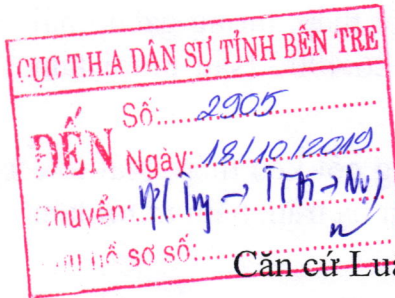 CỤC T.H.A DÂN SỰ TỈNH BẾN TRE
ĐẾN
Số: 2905
Ngày: 18/10/2019
Chuyển:
sơ số:
Căn cứ Luậ